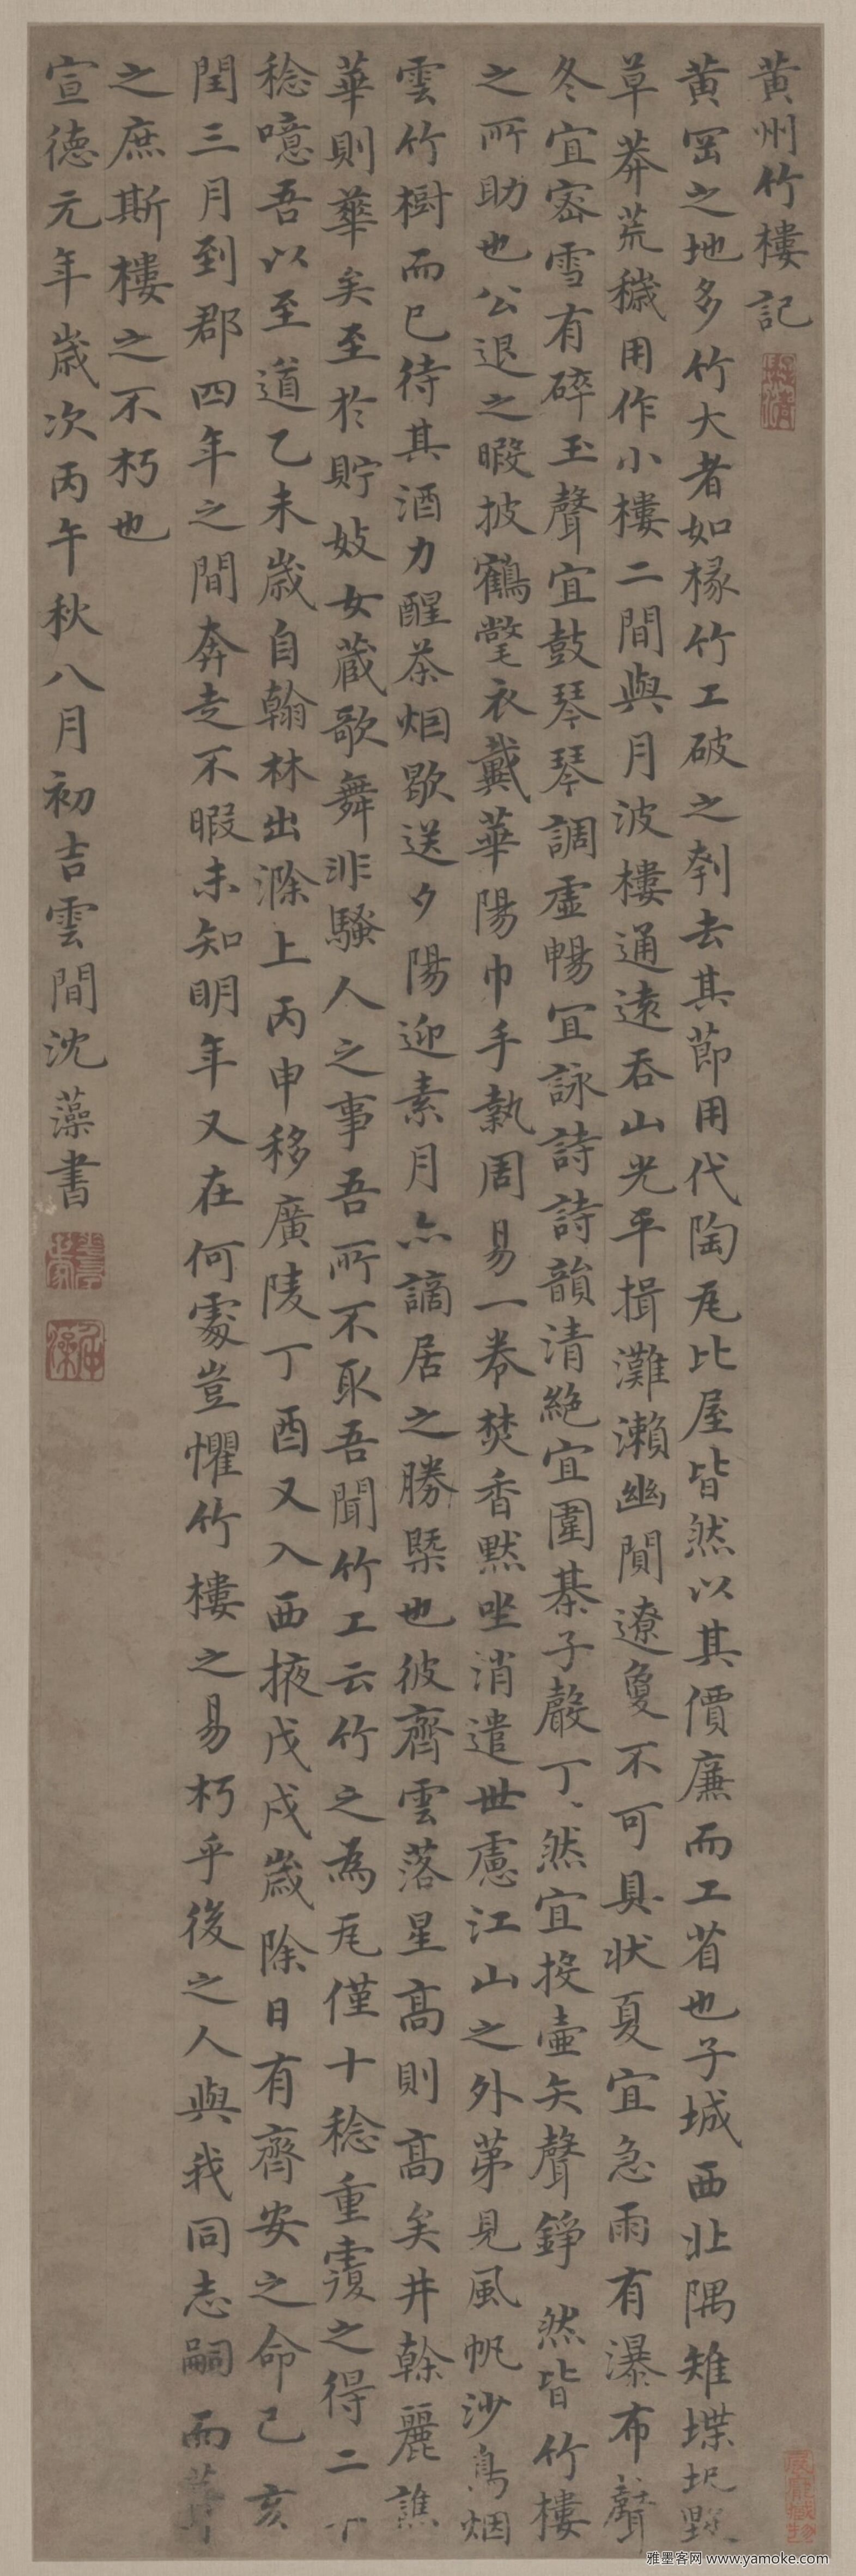 黄州竹樓記
黄罡之地多竹大者如椽竹工破之刳去其節用代陶瓦比屋皆然以其價廉而工省也子城西北隅雉堞圯毀
草莽荒穢用作小樓二間與月波樓通遠吞山光平揖灘瀨幽閴遼敻不可具狀夏宜急雨有瀑布聲
冬宜宻雪有碎玉聲宜鼓琴琴調虚暢宜詠詩詩韻清絕宜圍棊子聲丁丶然宜投壺矢聲錚然皆竹樓
之所助也公退之暇披鶴氅衣戴華陽巾手執周易一卷焚香默坐消遣世慮江山之外第見風帆沙鳥烟
雲竹樹而已待其酒力醒茶烟歇送夕陽迎素月亦謫居之勝槩也彼齊雲落星髙則髙矣井榦麗譙
華則華矣至於貯妓女藏歌舞非騷人之事吾所不取吾聞竹工云竹之為瓦僅十稔重覆之得二十
稔噫吾以至道乙未歲自翰林出滁上丙申移廣陵丁酉又入西掖戊戌歲除日有齊安之命己亥
閏三月到郡四年之間奔走不暇未知明年又在何處豈懼竹樓之易朽乎後之人與我同志嗣而葺
之庶斯樓之不朽也
宣德元年歲次丙午秋八月初吉雲間沈藻書
雅墨客网 www.yamoke.com